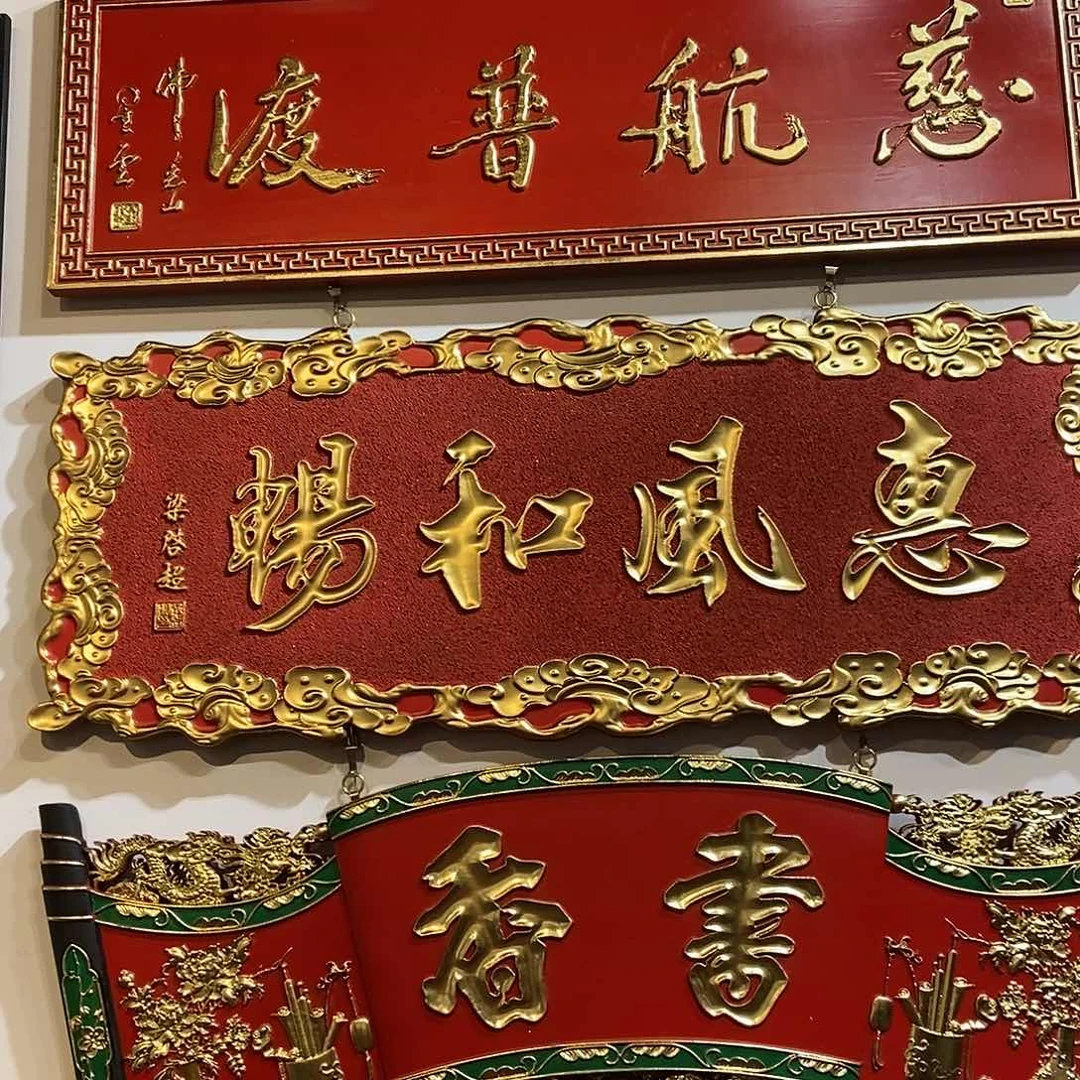 慈航普渡
佛光山
星雲
惠風和暢
梁啓超
書香